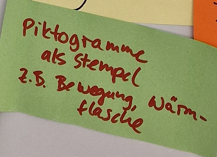 Piktogramme
als Stempel
z.B. Bewegung, Wärm-
flasche